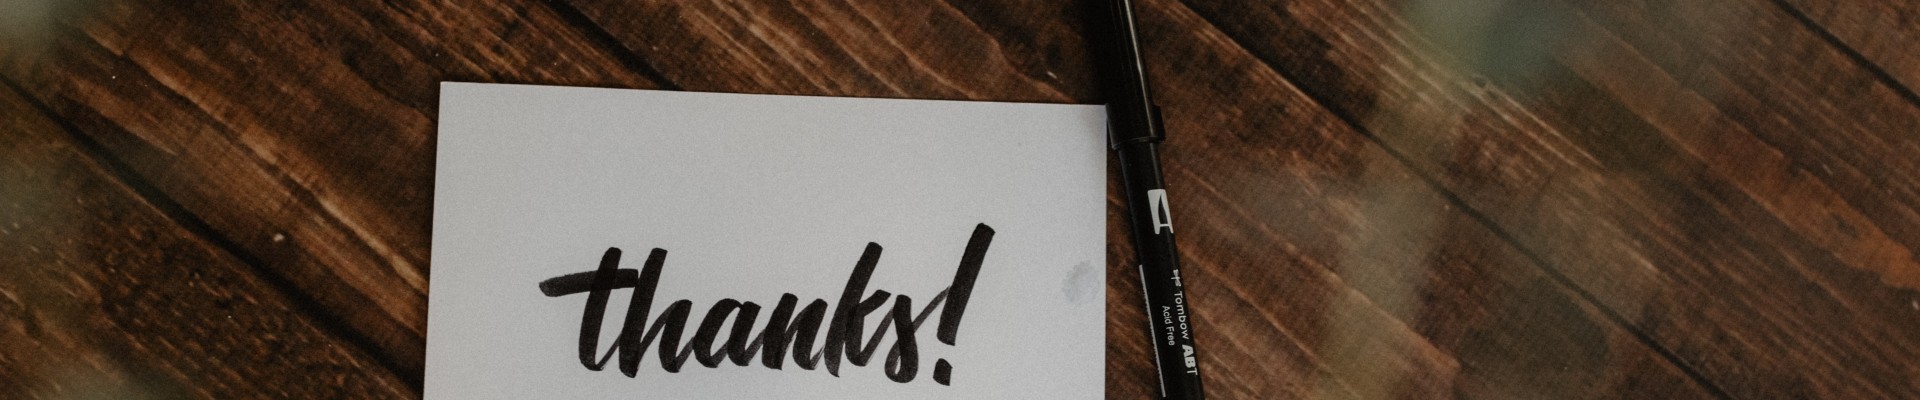 thanks!
Tombow ABT
Acid Free